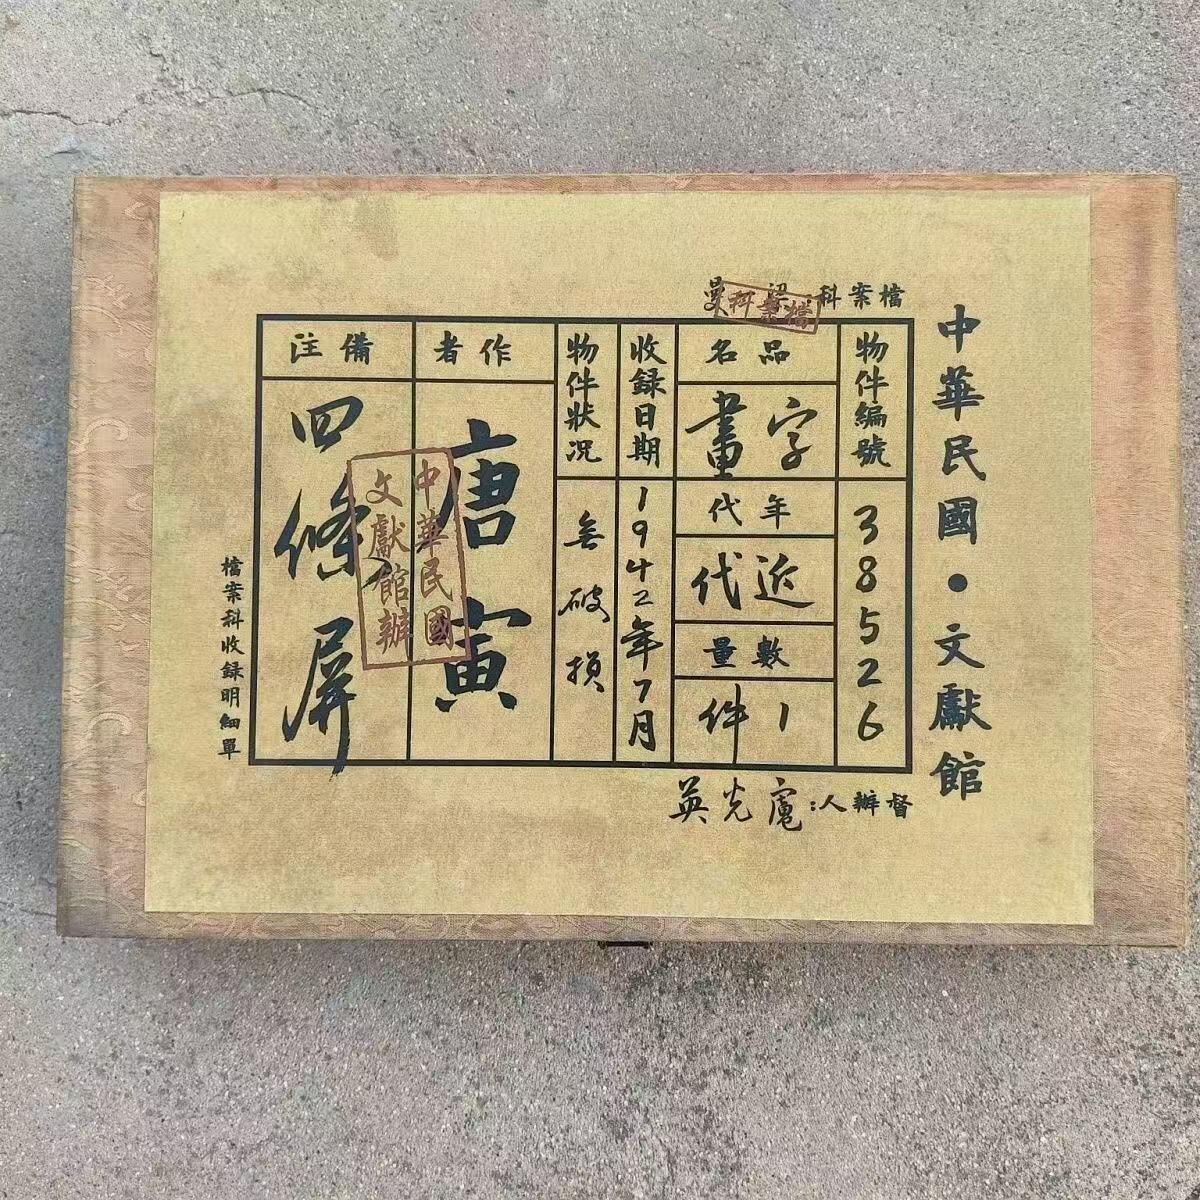 中華民國·文獻館
檔案科
檔案科
物件編號
38526
品名
字畫
年代
近代
數量
1件
收録日期
1942年7月
物件狀况
無破損
作者
唐寅
備注
四條屏
中華民國
文獻館辦
督辦人:
光英
檔案科收録明細單